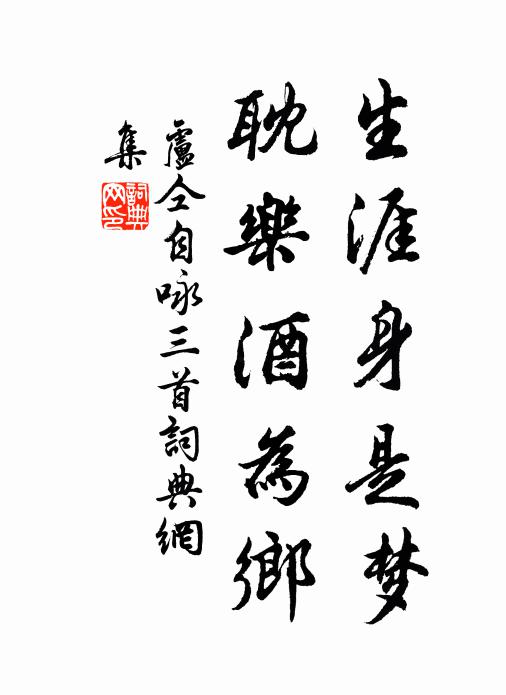 生涯身是梦
耽樂酒為鄉
盧仝自咏三首詞典網
集
詞典網印